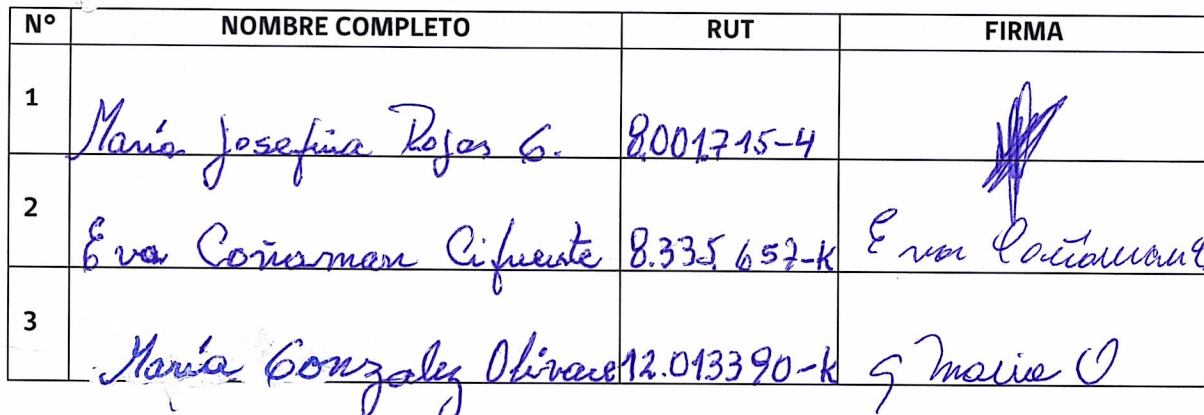 N° NOMBRE COMPLETO RUT FIRMA
1 María Josefina Rojas G. 8.001.715-4
2 Eva Coñaman Cifuente 8.335.657-K Eva Coñaman
3 María Gonzalez Olivare 12.013390-K G Maria O